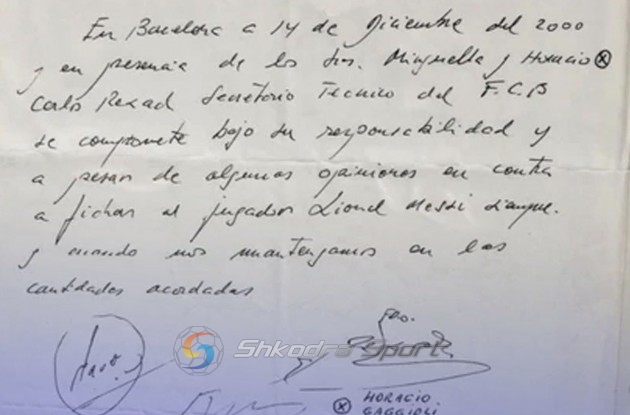 En Barcelona a 14 de Diciembre del 2000
y en presencia de los Srs. Minguella y Horacio ⓧ
Carlos Rexach Secretario Tecnico del F.C.B
se compromete bajo su responsabilidad y
a pesar de algunas opiniones en contra
a fichar al jugador Lionel Messi siempre.
y cuando nos mantengamos en las
cantidades acordadas
Fdo.
Shkodra Sport
ⓧ HORACIO
GAGGIOLI